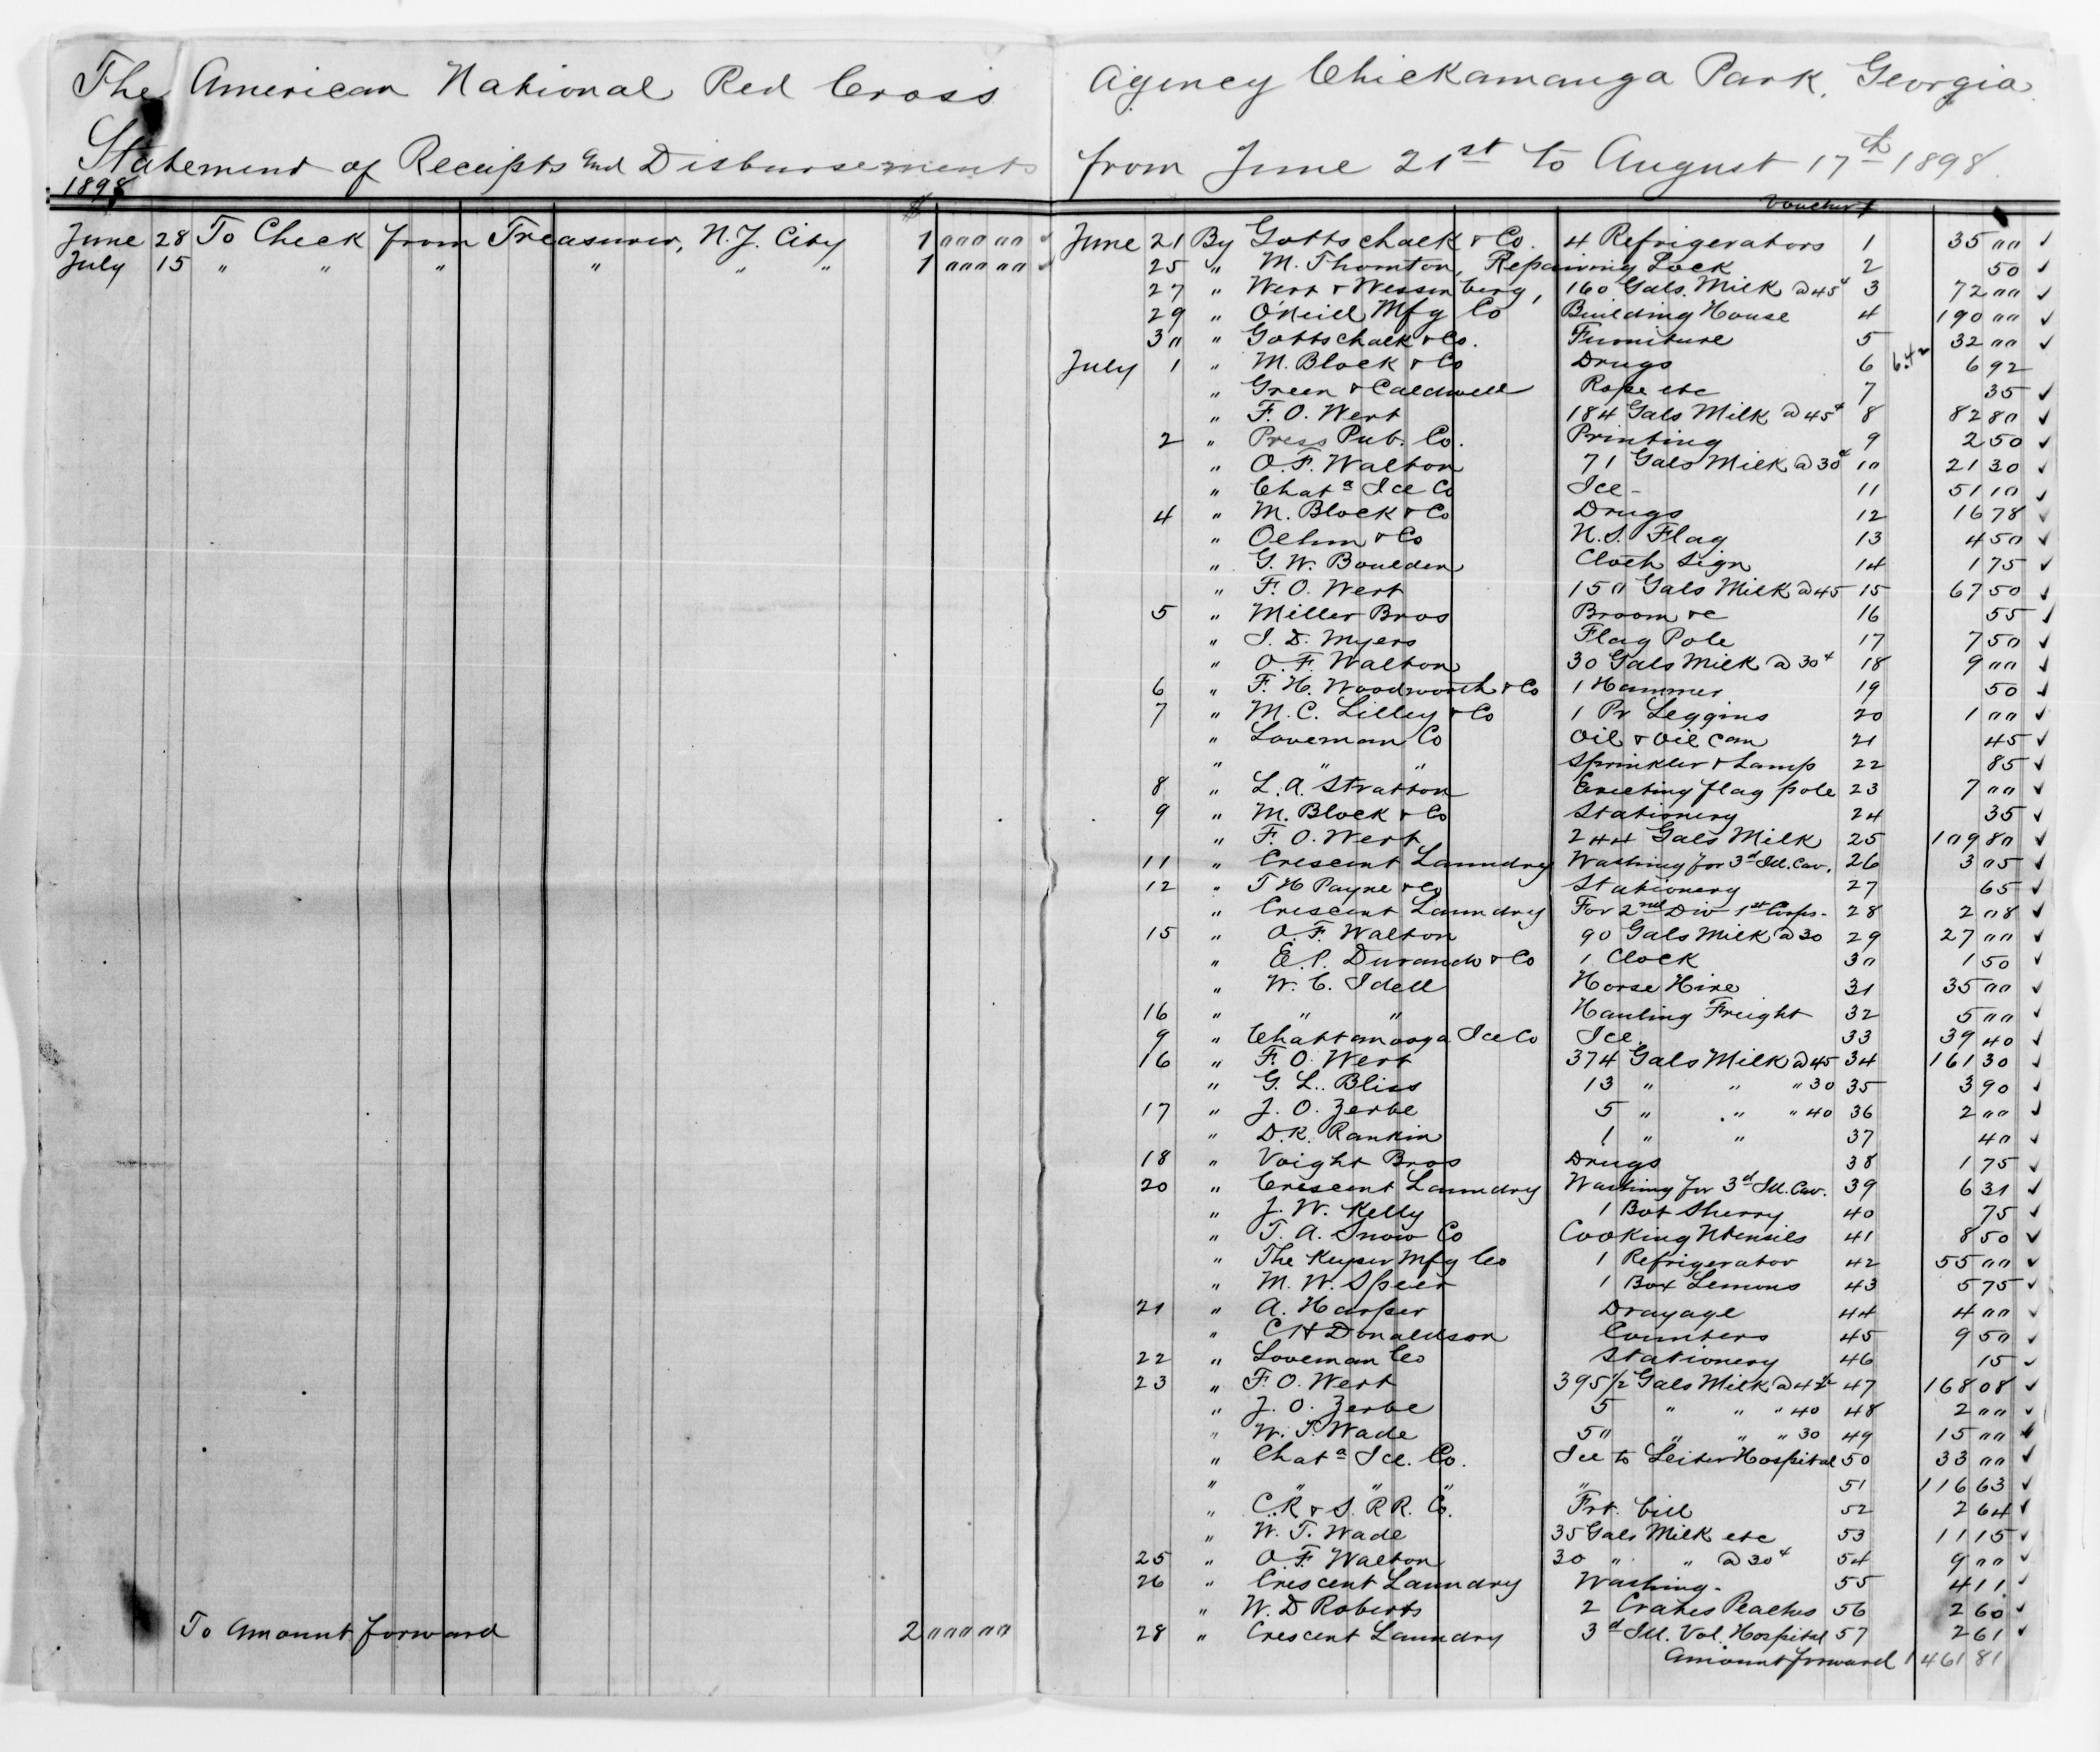 The American National Red Cross
Agency Chickamauga Park, Georgia
Statement of Receipts and Disbursements
from June 21st to August 17th 1898.
1898
$
June 28 To Check from Treasurer, N.Y. City 1 000 00
July 15 " " " " " " 1 000 00
To Amount forward 2 000 00
Voucher #
June 21 By Gottschalk & Co. 4 Refrigerators 1 35 00 ✓
25 " M. Thornton, Repairing Lock 2 50 ✓
27 " Wert & Wessenberg, 160 Gals. Milk @ 45¢ 3 72 00 ✓
29 " O'Neill Mfg Co Building House 4 190 00 ✓
30 " Gottschalk & Co. Furniture 5 32 00 ✓
July 1 " M. Block & Co Drugs 6 6 92
" Green & Caldwell Rope etc 7 35 ✓
" F. O. Wert 184 Gals Milk @ 45¢ 8 82 80 ✓
2 " Press Pub. Co. Printing 9 2 50 ✓
" O. F. Walton 71 Gals Milk @ 30¢ 10 21 30 ✓
" Chata Ice Co Ice - 11 51 10 ✓
4 " M. Block & Co Drugs 12 16 78 ✓
" Oehm & Co N.S. Flag 13 4 50 ✓
" G. W. Boulden Cloth Sign 14 1 75 ✓
" F. O. Wert 150 Gals Milk @ 45 15 67 50 ✓
5 " Miller Bros Broom &c 16 55 ✓
" I. D. Myers Flag Pole 17 7 50 ✓
" O. F. Walton 30 Gals Milk @ 30¢ 18 9 00 ✓
6 " F. H. Woodworth & Co 1 Hammer 19 50 ✓
7 " M. C. Lilley & Co 1 Pr Leggins 20 1 00 ✓
" Loveman Co Oil & Oil Can 21 45 ✓
" " " Sprinkler & Lamp 22 85 ✓
8 " L. A. Stratton Erecting flag pole 23 7 00 ✓
9 " M. Block & Co Stationery 24 35 ✓
" F. O. Wert 244 Gals Milk 25 109 80 ✓
11 " Crescent Laundry Washing for 3d Ill. Cav. 26 3 05 ✓
12 " T H Payne & Co Stationery 27 65 ✓
" Crescent Laundry For 2nd Div 1st Corps - 28 2 08 ✓
15 " O. F. Walton 90 Gals Milk @ 30 29 27 00 ✓
" E. P. Durando & Co 1 Clock 30 1 50 ✓
" W. C. Idell Horse Hire 31 35 00 ✓
16 " " " Hauling Freight 32 5 00 ✓
9 " Chattanooga Ice Co Ice 33 39 40 ✓
16 " F. O. Wert 374 Gals Milk @ 45 34 161 30 ✓
" G. L. Bliss 13 " " " 30 35 3 90 ✓
17 " J. O. Zerbe 5 " " " 40 36 2 00 ✓
" D. K. Rankin 1 " " 37 40 ✓
18 " Voight Bros Drugs 38 1 75 ✓
20 " Crescent Laundry Washing for 3d Ill. Cav. 39 6 31 ✓
" J. W. Kelly 1 Bot Sherry 40 75 ✓
" T. A. Snow Co Cooking Utensils 41 8 50 ✓
" The Keyser Mfg Co 1 Refrigerator 42 55 00 ✓
" M. W. Speer 1 Box Lemons 43 5 75 ✓
21 " A. Harper Drayage 44 4 00 ✓
" C H Donaldson Counters 45 9 50 ✓
22 " Loveman Co Stationery 46 15 ✓
23 " F. O. Wert 395 1/2 Gals Milk @ 42½ 47 168 08 ✓
" J. O. Zerbe 5 " " " 40 48 2 00 ✓
" W. T. Wade 50 " " " 30 49 15 00 ✓
" Chata Ice. Co. Ice to Leiter Hospital 50 33 00 ✓
" " " " " 51 116 63 ✓
" C. R & S. R R. Co. Frt. bill 52 2 64 ✓
" W. T. Wade 35 Gals Milk etc 53 11 15 ✓
25 " O. F. Walton 30 " " @ 30¢ 54 9 00 ✓
26 " Crescent Laundry Washing - 55 4 11 ✓
" W. D Roberts 2 Crates Peaches 56 2 60 ✓
28 " Crescent Laundry 3d Ill. Vol. Hospital 57 2 61 ✓
Amount forward 1 461 81